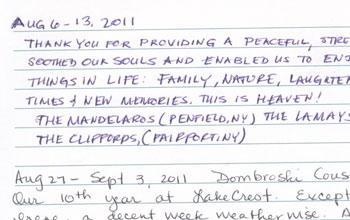 AUG 6-13, 2011
THANK YOU FOR PROVIDING A PEACEFUL, STRE
SOOTHED OUR SOULS AND ENABLED US TO ENJ
THINGS IN LIFE: FAMILY, NATURE, LAUGHTER
TIMES & NEW MEMORIES. THIS IS HEAVEN!
THE MANDELAROS (PENFIELD, NY) THE LAMAYS
THE CLIFFORDS, (FAIRPORT, NY)
Aug 27 - Sept 3, 2011 Dombroski Cous
Our 10th year at LakeCrest. Except
a decent week weather wise.